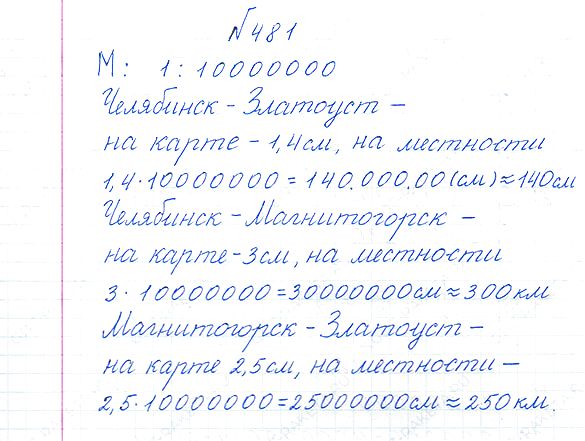 №481
М: 1:10000000
Челябинск - Златоуст -
на карте - 1,4см, на местности
1,4·10000000=140.000.00(см)≈140см
Челябинск - Магнитогорск -
на карте-3см, на местности
3·10000000=30000000см≈300км
Магнитогорск - Златоуст -
на карте 2,5см, на местности -
2,5·10000000=25000000см≈250км.